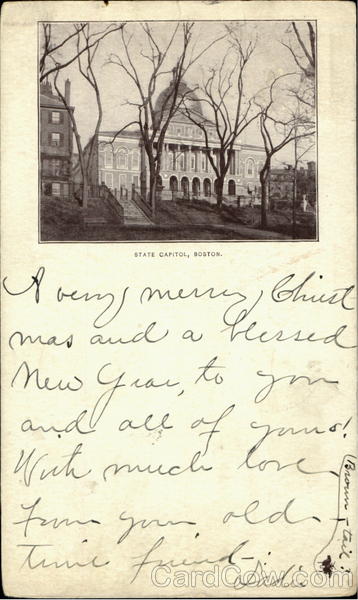 STATE CAPITOL, BOSTON.
A very merry Christ
mas and a blessed
New Year, to you
and all of yours!
With much love
from your old-
time friend
(Brown-tail!
CardCow.com